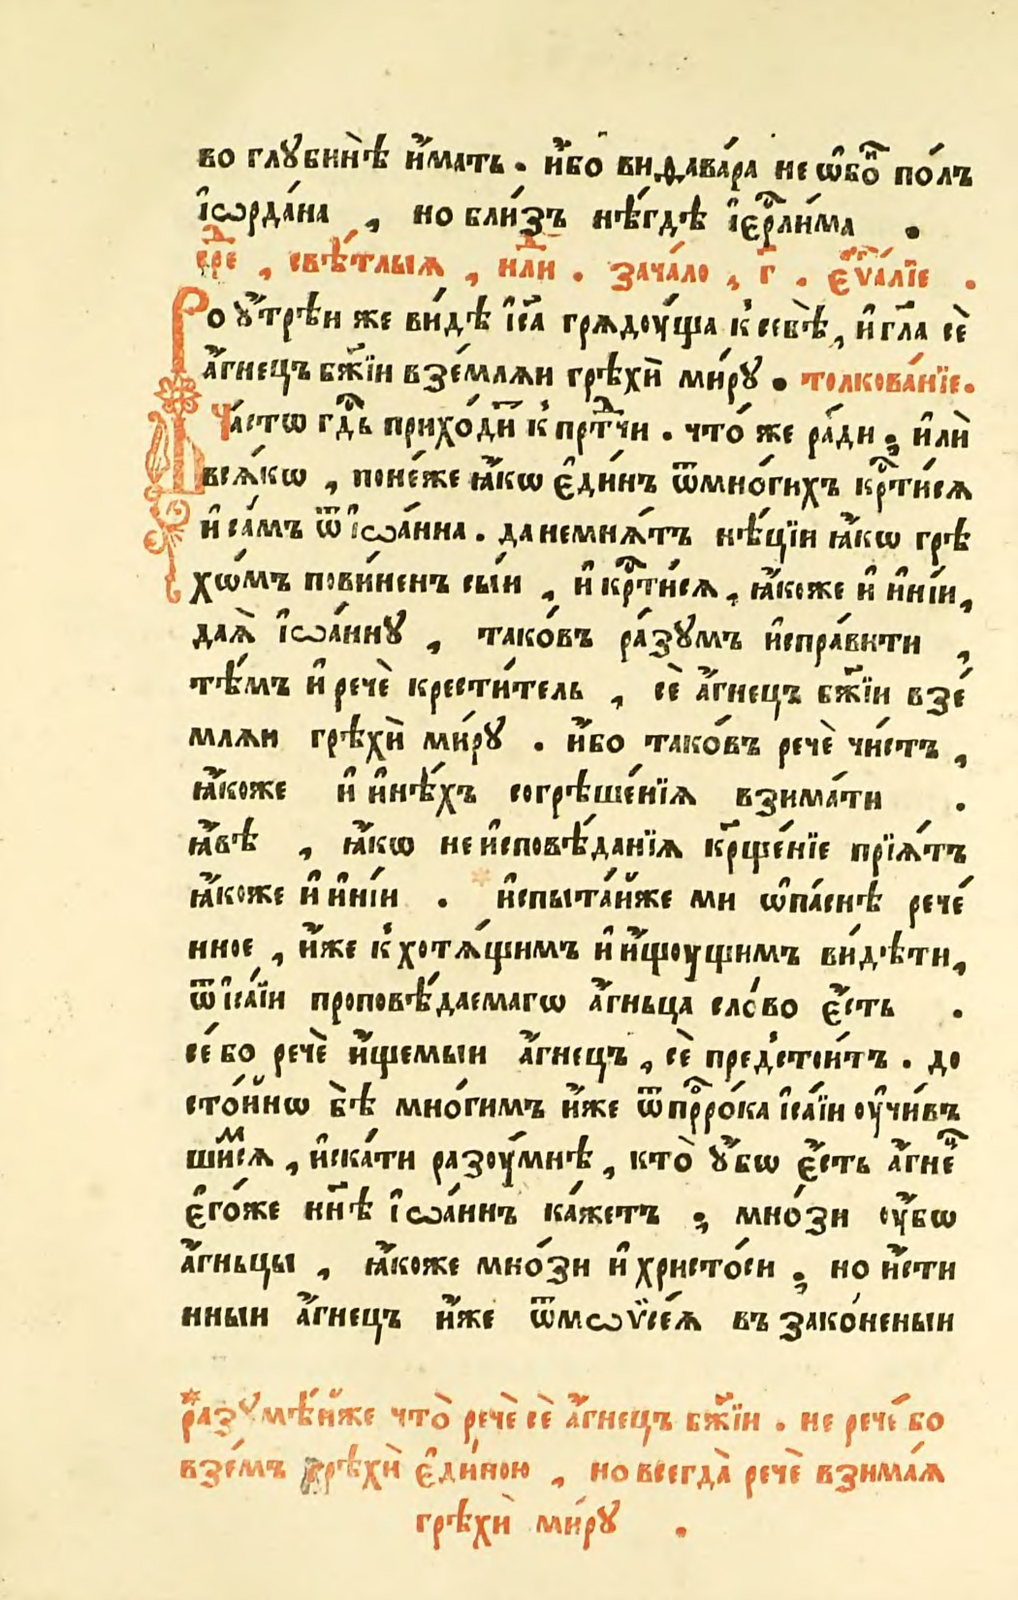 во глꙋбинѣ̀ и҆́мать . и҆́бо виѳава́ра не ѡ҆боⷩ҇ по́лъ
і҆ѡрда́на , но бли́зъ нѣ́гдѣ і҆ерⷭ҇ли́ма .
среⷣ , свѣ́тлыѧ , нлⷣи . зача́ло , г҃ . єѵⷢ҇а́лїе .
Во ᲂу҆́трѣи же ви́дѣ і҆с҃а грѧдꙋ́ща к̾ себѣ̀ , и҆ гл҃а сѐ
а҆́гнецъ бж҃їи взе́млѧи грѣхѝ ми́рꙋ . толкова́нїе .
Ча́стѡ гдⷭ҇ь прихо́дитъ к̾ прⷣт҃чи . что́ же ра́ди ; и҆лѝ
всѧ́кѡ , поне́же ꙗ҆́кѡ є҆ди́нъ ѿмно́гихъ крⷭ҇ти́сѧ
и҆ са́мъ ѿ і҆ѡа́нна . да немнѧ́тъ нѣ́цїи ꙗ҆́кѡ грѣ
хѡ́мъ пови́ненъ сы́и , и҆ крⷭ҇ти́сѧ , ꙗ҆́коже и҆ и҆ні́и ,
даѧ̀ і҆ѡа́ннꙋ , тако́въ ра́зꙋмъ и҆спра́вити ,
тѣ́мъ и҆ речѐ крести́тель , сѐ а҆́гнецъ бж҃їи взе́
млѧи грѣхѝ ми́рꙋ . и҆́бо тако́въ речѐ чи́стъ ,
ꙗ҆́коже и҆ и҆нѣ́хъ согрѣше́нїѧ взима́ти .
ꙗ҆́вѣ , ꙗ҆́кѡ не и҆сповѣ́данїѧ крⷭ҇ще́нїе прїѧ́тъ
ꙗ҆́коже и҆ и҆ні́и . * и҆спыта́йже ми ѡ҆па́снѣ рече́
нное , и҆́же к̾ хотѧ́щимъ и҆ и҆́щꙋщимъ ви́дѣти ,
ѿ і҆са́їи проповѣ́даемагѡ а҆́гньца сло́во є҆́сть .
се́ бо речѐ и҆́щемыи а҆́гнецъ , сѐ пред̾стои́тъ . до
сто́йнѡ бѣ̀ мно́гимъ и҆́же ѿпрⷪ҇ро́ка і҆са́їи ᲂу҆чи́въ
шиⷨсѧ , и҆ска́ти разꙋ́мнѣ , кто̀ ᲂу҆́бѡ є҆́сть а҆́гнеⷰ҇
є҆го́же нн҃ѣ і҆ѡа́ннъ ка́жетъ ; мно́зи ᲂу҆́бѡ
а҆́гньцы , ꙗ҆́коже мно́зи и҆ христо́си , но и҆́сти
нныи а҆́гнецъ и҆́же ѿмѡѷсе́ѧ въ зако́неныи
* разꙋмѣ́йже что̀ речѐ сѐ а҆́гнецъ бж҃їи . не рече́ бо
взе́мъ грѣхѝ є҆ди́ною , но всегда̀ речѐ взима́ѧ
грѣхѝ ми́рꙋ .